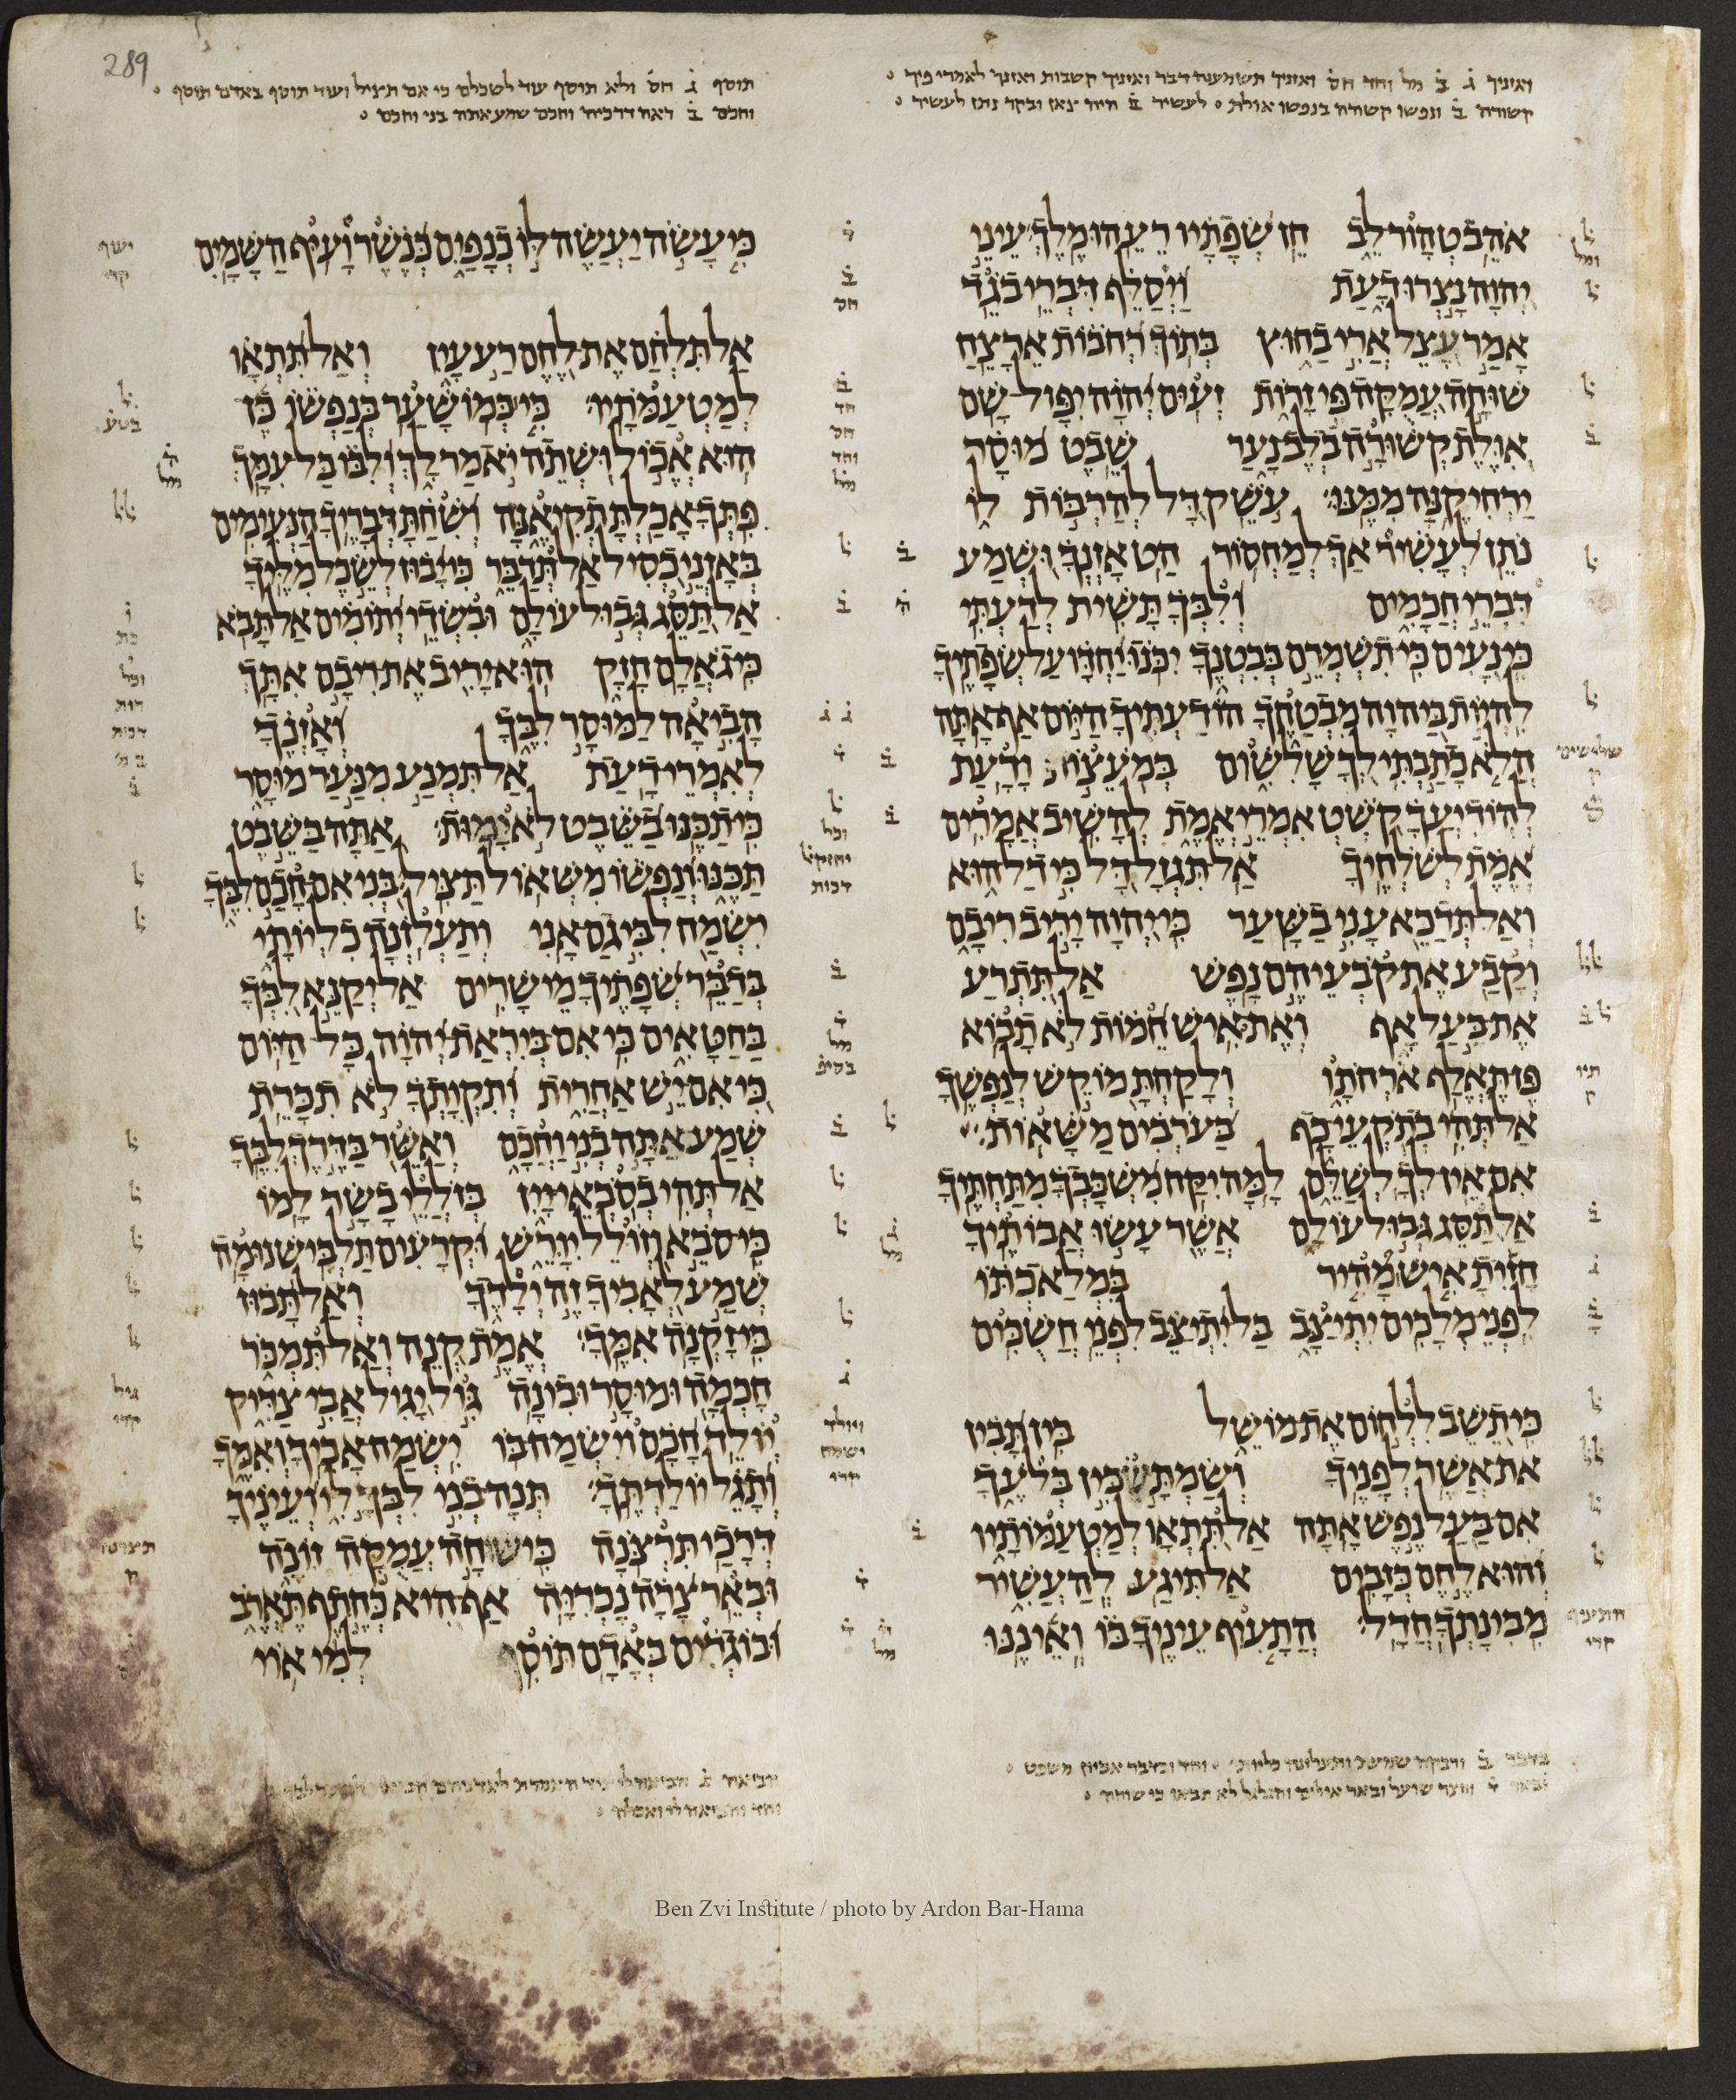 289
ואזניך ג ב מל וחד חס ואזניך תשמענה דבר ואזניך קשבות ואזנך לאמרי פיך
קשורה ב ונפשו קשורה בנפשו אולת לעשיר ב היה צאן ובקר נתן לעשיר
תוסף ג חס ולא תוסף עוד לשכלם כי אם תציל ועוד תוסף באדם תוסף
וחכם ב ראה דרכיה וחכם שמע אתה בני וחכם
אהב טהור לב חן שפתיו רעהו מלך עיני
יהוה נצרו דעת ויסלף דברי בגד
אמר עצל ארי בחוץ בתוך רחבות ארצח
שוחה עמקה פי זרות זעום יהוה יפול שם
אולת קשורה בלב נער שבט מוסר
ירחיקנה ממנו עשק דל להרבות לו
נתן לעשיר אך למחסור הט אזנך ושמע
דברי חכמים ולבך תשית לדעתי
כי נעים כי תשמרם בבטנך יכנו יחדו על שפתיך
להיות ביהוה מבטחך הודעתיך היום אף אתה
הלא כתבתי לך שלשום במעצות ודעת
להודיעך קשט אמרי אמת להשיב אמרים
אמת לשלחיך אל תגזל דל כי דל הוא
ואל תדכא עני בשער כי יהוה יריב ריבם
וקבע את קבעיהם נפש אל תתרע
את בעל אף ואת איש חמות לא תבוא
פן תאלף ארחתו ולקחת מוקש לנפשך
אל תהי בתקעי כף בערבים משאות
אם אין לך לשלם למה יקח משכבך מתחתיך
אל תסג גבול עולם אשר עשו אבותיך
חזית איש מהיר במלאכתו
לפני מלכים יתיצב בל יתיצב לפני חשכים
כי תשב ללחום את מושל בין תבין
את אשר לפניך ושמת שכין בלעך
אם בעל נפש אתה אל תתאו למטעמותיו
והוא לחם כזבים אל תיגע להעשיר
מבינתך חדל התעוף עיניך בו ואיננו
כי עשה יעשה לו כנפים כנשר ועיף השמים
אל תלחם את לחם רע עין ואל תתאו
למטעמתיו כי כמו שער בנפשו כן
הוא אכול ושתה יאמר לך ולבו בל עמך
פתך אכלת תקיאנה ושחת דבריך הנעימים
באזני כסיל אל תדבר כי יבוז לשכל מליך
אל תסג גבול עולם ובשדי יתומים אל תבא
כי גאלם חזק הוא יריב את ריבם אתך
הביאה למוסר לבך ואזנך
לאמרי דעת אל תמנע מנער מוסר
כי תכנו בשבט לא ימות אתה בשבט
תכנו ונפשו משאול תציל בני אם חכם לבך
ישמח לבי גם אני ותעלזנה כליותי
בדבר שפתיך מישרים אל יקנא לבך
בחטאים כי אם ביראת יהוה כל היום
כי אם יש אחרית ותקותך לא תכרת
שמע אתה בני וחכם ואשר בדרך לבך
אל תהי בסבאי יין בזללי בשר למו
כי סבא וזולל יורש וקרעים תלביש נומה
שמע לאביך זה ילדך ואל תבוז
כי זקנה אמך אמת קנה ואל תמכר
חכמה ומוסר ובינה גול יגול אבי צדיק
יולד חכם וישמח בו ישמח אביך ואמך
ותגל יולדתך תנה בני לבך לי ועיניך
דרכי תרצנה כי שוחה עמקה זונה
ובאר צרה נכריה אף היא כחתף תארב
ובוגדים באדם תוסף למי אוי
Ben Zvi Institute / photo by Ardon Bar-Hama